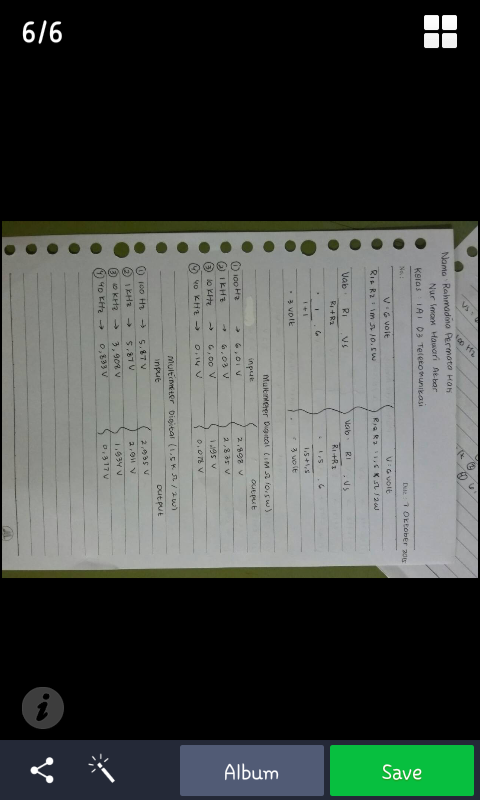 6/6
Nama Rahmadina Permata Hati
Nur Iman Hawari Akbar
Kelas 1A1 D3 Telekomunikasi
No.: Date. 7 Oktober 2015
V = 6 volt V = 6 volt
R1 & R2 = 1 m Ω / 0,5 W R1 & R2 = 1,5 K Ω / 2W
Vab = R1 Vs Vab = R1 . Vs
R1 + R2 R1 + R2
= 1 . 6 = 1,5 . 6
1 + 1 1,5 + 1,5
= 3 volt = 3 volt
Multimeter Digital (1M Ω / 0,5W)
Input Output
① 100 Hz → 6,01 V 2,898 V
② 1 KHz → 6,03 V 2,835 V
③ 10 KHz → 6,00 V 1,195 V
④ 40 KHz → 0,14 V 0,072 V
Multimeter Digital (1,5 K Ω / 2W)
Input Output
① 100 Hz → 5,87 V 2,935 V
② 1 KHz → 5,87 V 2,911 V
③ 10 KHz → 3,908 V 1,934 V
④ 40 KHz → 0,833 V 0,377 V
Album
Save